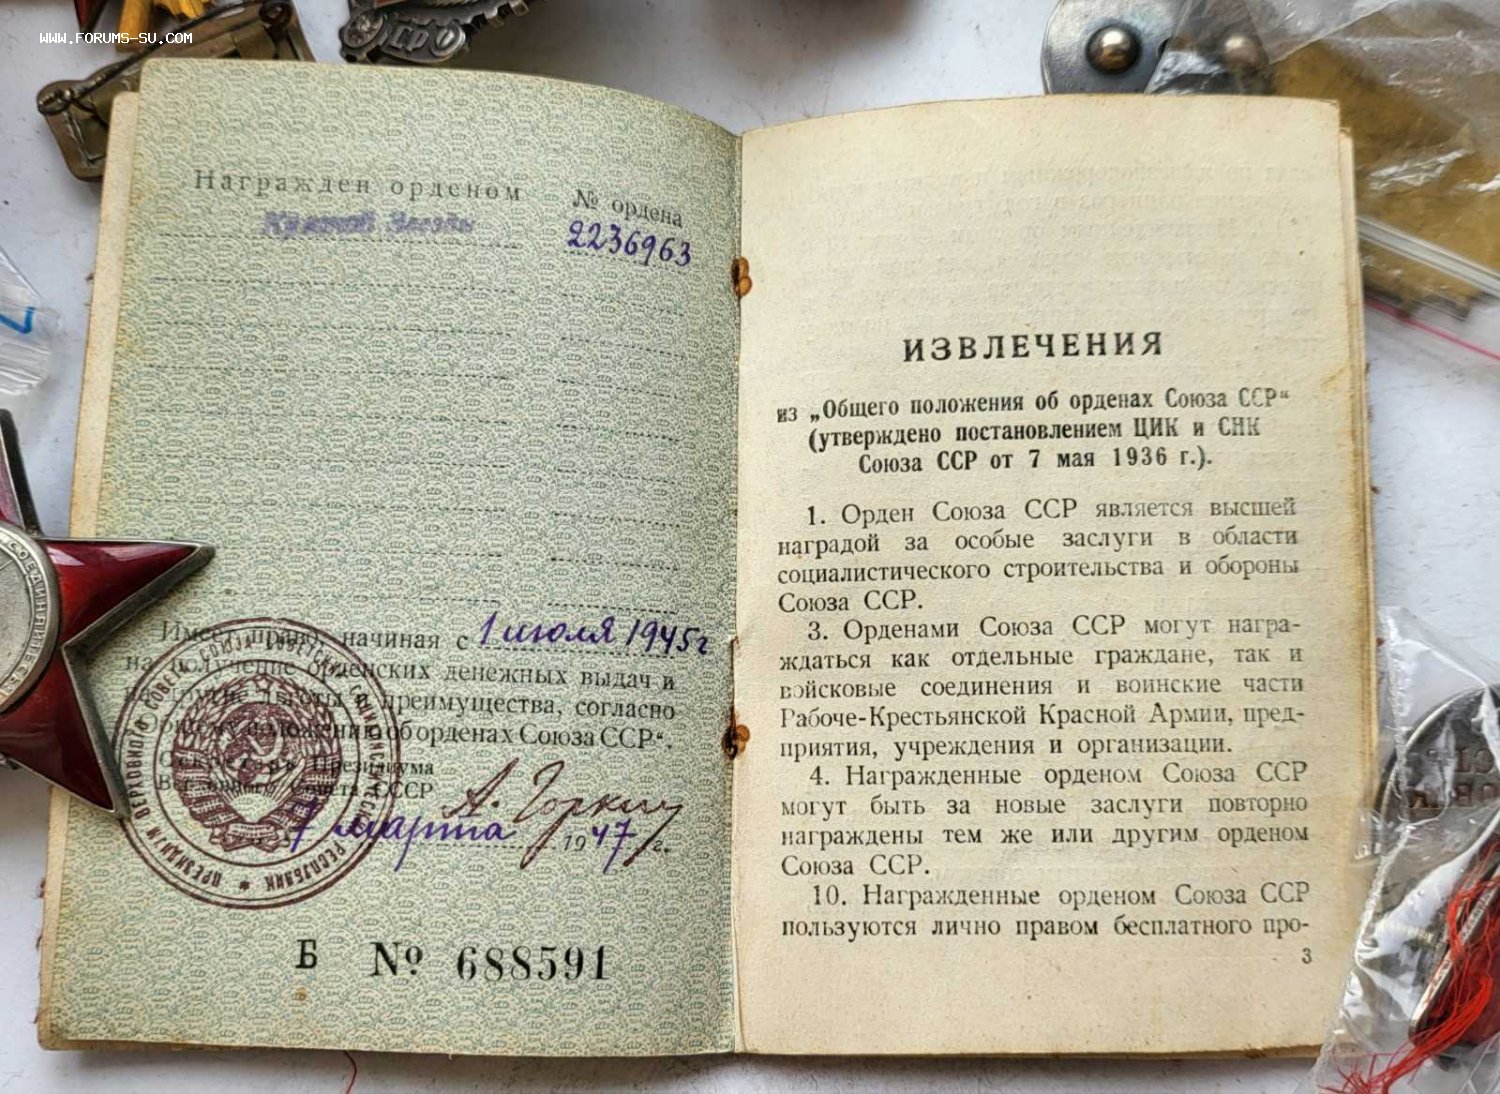 WWW.FORUMS-SU.COM
СРФ
Награжден орденом
№ ордена
Красной Звезды
2236963
Имеет право, начиная с 1 июля 1945г
на получение орденских денежных выдач и
льготы и преимущества, согласно
об орденах Союза ССР“.
Секретарь Президиума
Верховного Совета СССР
А. Горкин
7 марта 1947 г.
ПРЕЗИДИУМ ВЕРХОВНОГО СОВЕТА СОЮЗА СОВЕТСКИХ СОЦИАЛИСТИЧЕСКИХ РЕСПУБЛИК
Б № 688591
СОЕДИНЯЙТЕСЬ
ИЗВЛЕЧЕНИЯ
из „Общего положения об орденах Союза ССР“
(утверждено постановлением ЦИК и СНК
Союза ССР от 7 мая 1936 г.).
1. Орден Союза ССР является высшей
наградой за особые заслуги в области
социалистического строительства и обороны
Союза ССР.
3. Орденами Союза ССР могут награ-
ждаться как отдельные граждане, так и
войсковые соединения и воинские части
Рабоче-Крестьянской Красной Армии, пред-
приятия, учреждения и организации.
4. Награжденные орденом Союза ССР
могут быть за новые заслуги повторно
награждены тем же или другим орденом
Союза ССР.
10. Награжденные орденом Союза ССР
пользуются лично правом бесплатного про-
3